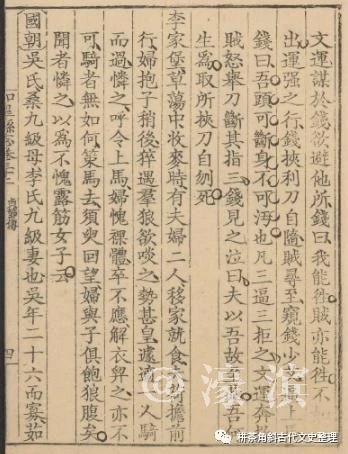 文運謀於錢欲避他所錢曰我能徃賊亦能徃不
出運强之行錢挾利刀自隨賊尋至窺錢少
錢曰吾頭可斷身不可汚也凡三逼三拒之文運奔
賊怒舉刀斷其指三錢見之泣曰夫以吾故至此吾
生爲取所挾刀自刎死
李家堡草蕩中收麥時有夫婦二人移家就食荷擔前
行婦抱子稍後猝遇羣狼欲啖之勢甚皇遽適人騎
而過憐之呼令上馬婦愧裸體卒不應解衣畀之亦不
可騎者無如何策馬去須臾回望婦與子俱飽狼腹矣
聞者憐之以爲不愧露筋女子云
四
國朝吳氏桑九級母李氏九級妻也吳年二十六而寡茹
@濠滨
栟茶角斜古代文史整理